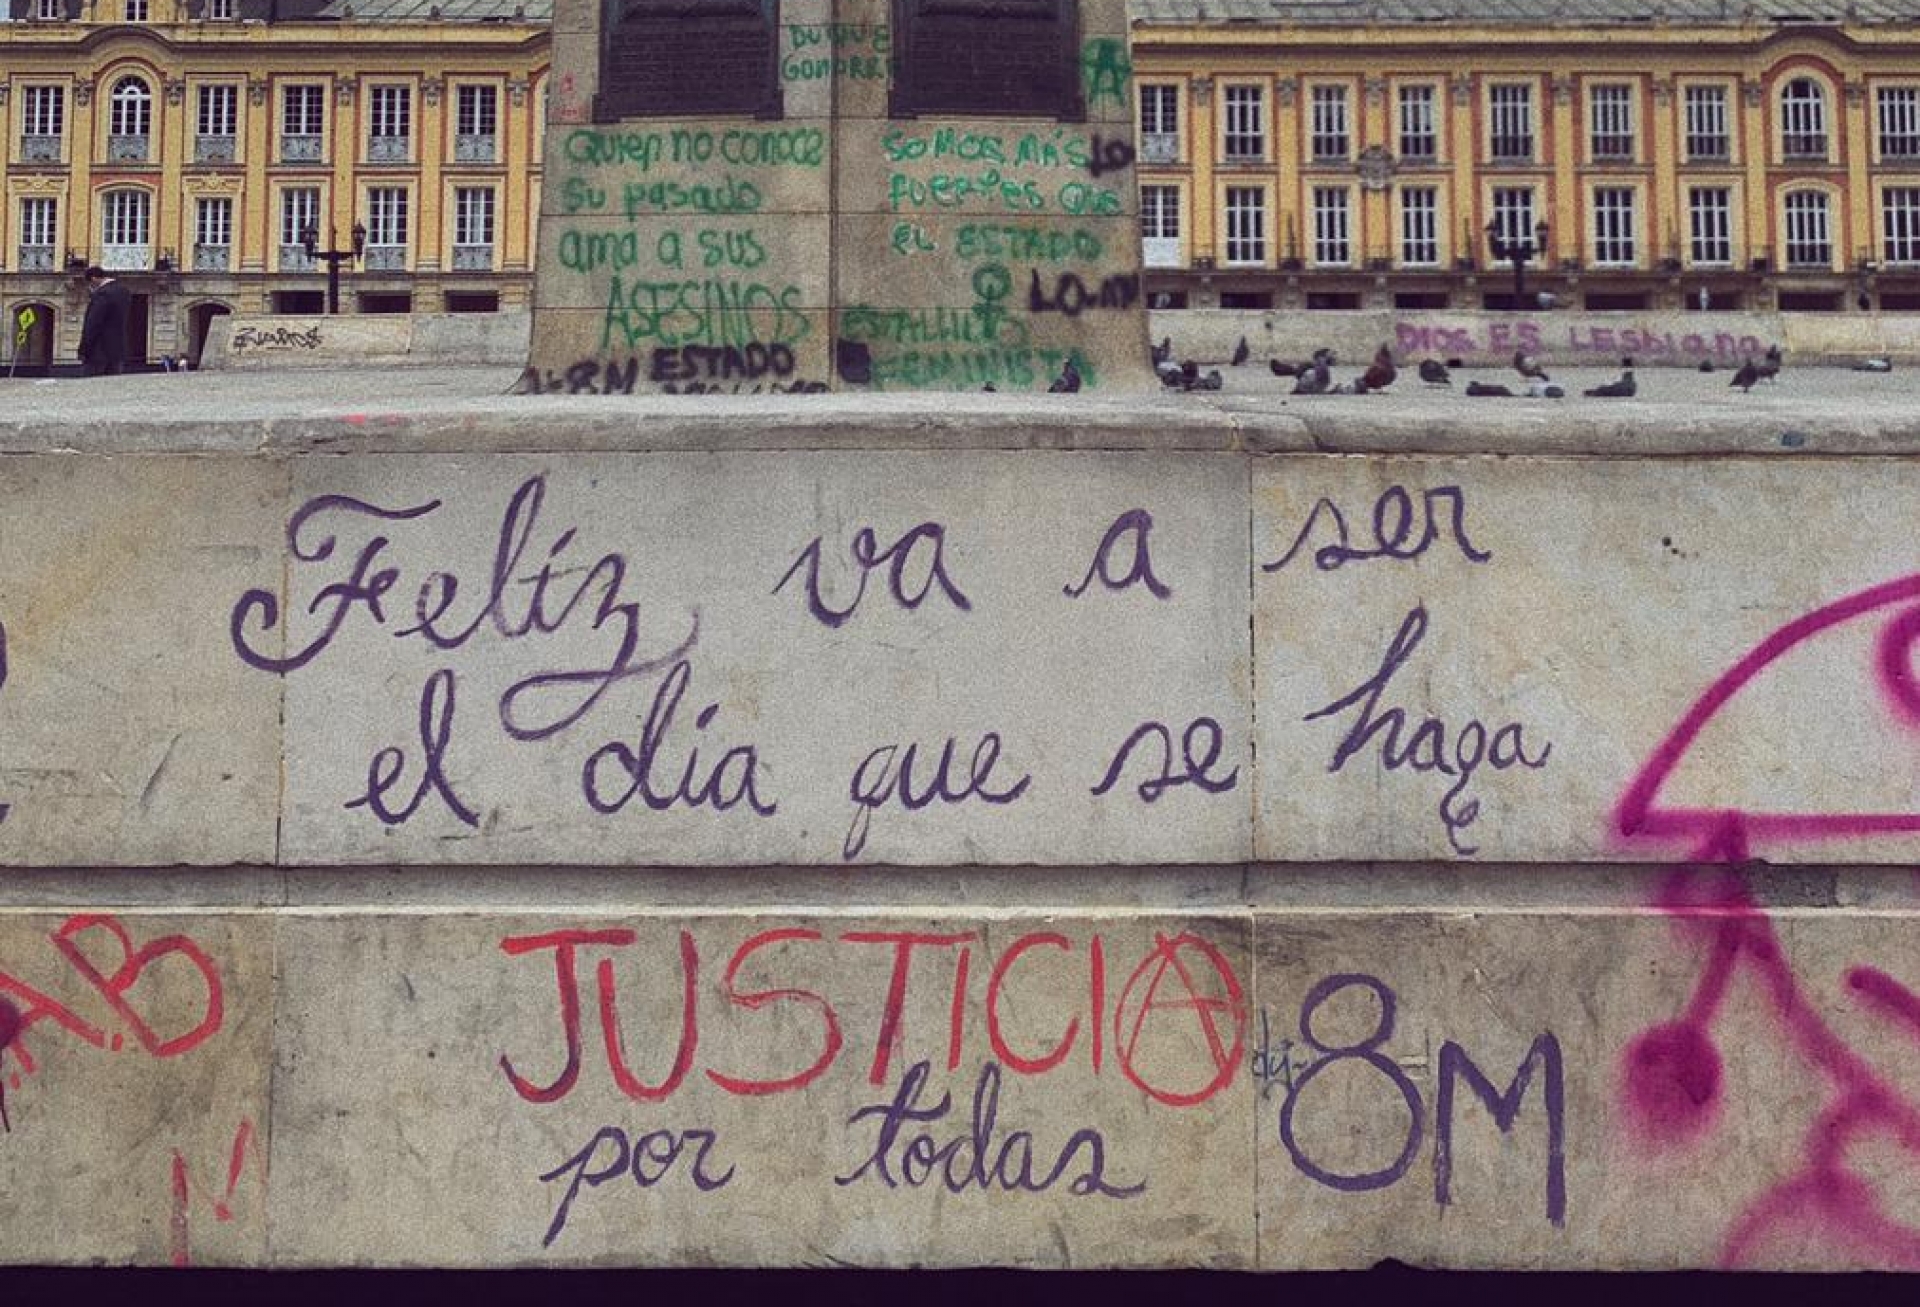 DUQUE
GONORREA
Quien no conoce
Su pasado
ama a sus
ASESINOS
8M ESTADO
SOMOS MÁS
FUERTES QUE
EL ESTADO
ESTALLIDO
FEMINISTA
DIOS ES LESbiana
Feliz va a ser
el día que se haga
JUSTICIA
por todas 8M